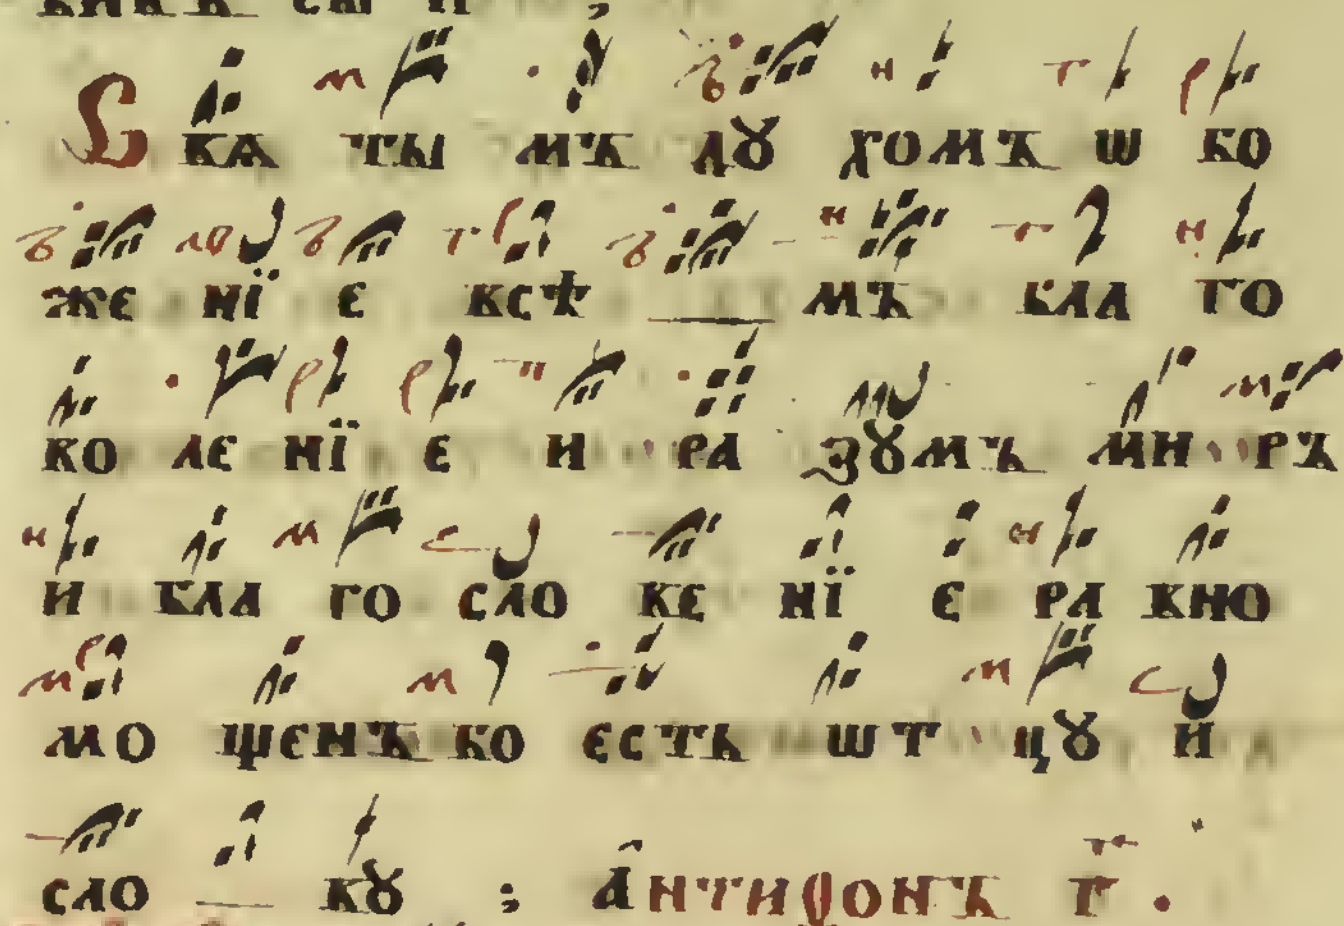 С вѧ ты мъ дꙋ хомъ ѡ бо
же нї е всѣ мъ бла го
во ле нї е и ра зꙋмъ миръ
и бла го сло ве нї е ра вно
мо щенъ бо есть ѿ цꙋ и
сло вꙋ ; антифонъ г҃ .